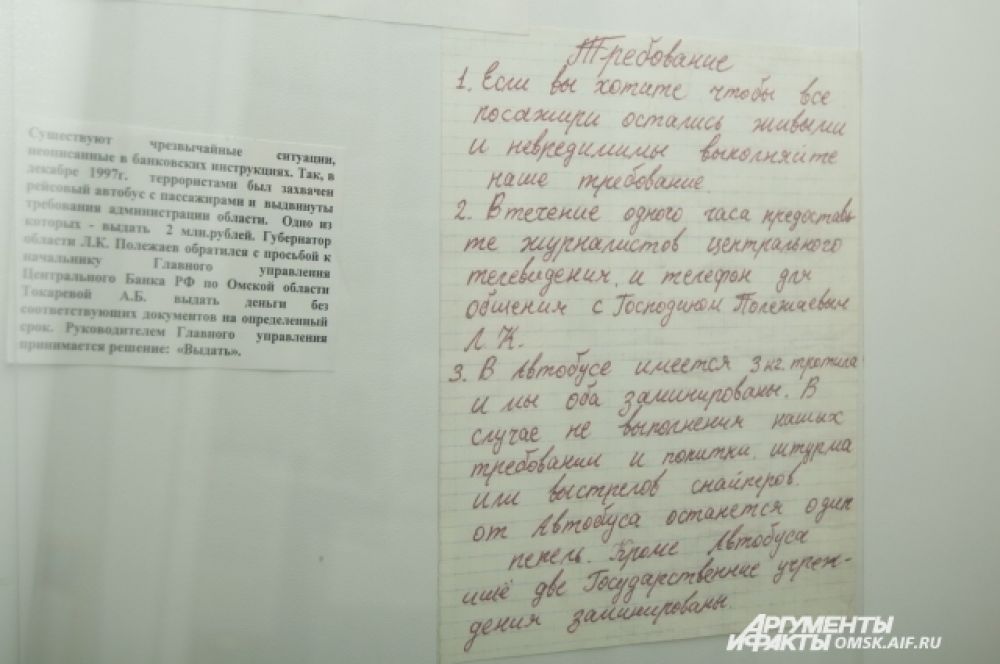 Существуют чрезвычайные ситуации,
неописанные в банковских инструкциях. Так, в
декабре 1997г. террористами был захвачен
рейсовый автобус с пассажирами и выдвинуты
требования администрации области. Одно из
которых - выдать 2 млн.рублей. Губернатор
области Л.К. Полежаев обратился с просьбой к
начальнику Главного управления
Центрального Банка РФ по Омской области
Токаревой А.Б. выдать деньги без
соответствующих документов на определенный
срок. Руководителем Главного управления
принимается решение: «Выдать».
Требование
1. Если вы хотите чтобы все
посажири остались живыми
и невредимимы выколняйте
наше требование.
2. В течение одного часа предоставь
те журналистов центрального
телевидения, и телефон для
обшения с Господином Полежаевым
Л.К.
3. В Автобусе имеется 3 кг. тротила
и мы оба заминированы. В
случае не выполнения наших
требовании и попитки, штурма
или выстрелов снайперов.
от Автобуса останется один
пепель. Кроме Автобуса
ишё две Государственние учреж-
дения заминированы.
АРГУМЕНТЫ
И ФАКТЫ OMSK.AIF.RU